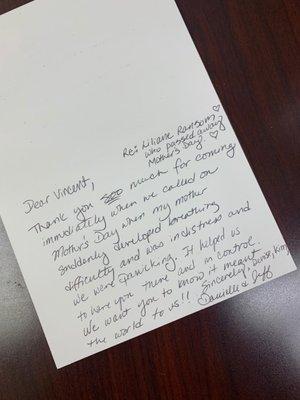 Re: Liliane Ransom
who passed away
Mother's Day. ♡
Dear Vincent,
Thank you so much for coming
immediately when we called on
Mother's Day when my mother
suddenly developed breathing
difficulty and was in distress and
we were panicking. It helped us
to have you there and in control.
We want you to know it meant
the world to us!! Sincerely, Kim,
Danielle & Jeff